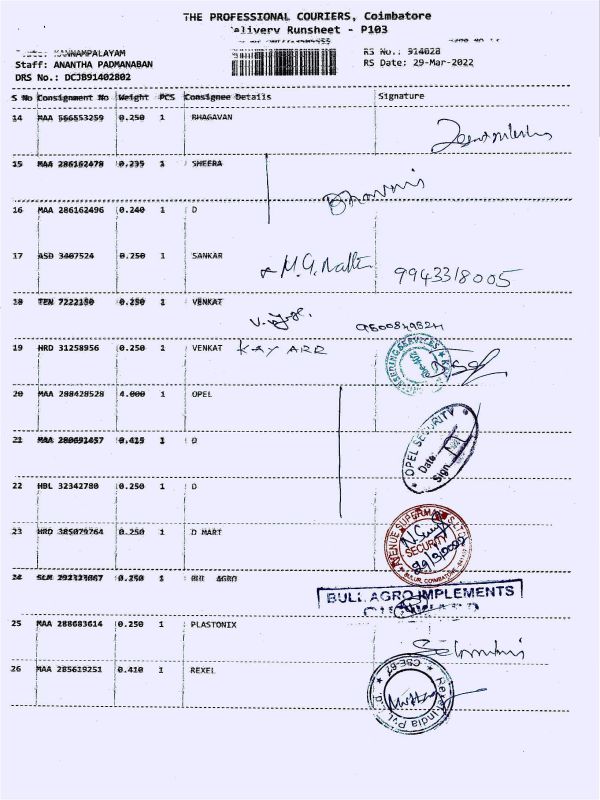 THE PROFESSIONAL COURIERS, Coimbatore
Delivery Runsheet - P103
KANNAMPALAYAM
RS No.: 914028
Staff: ANANTHA PADMANABAN
RS Date: 29-Mar-2022
DRS No.: DCJB91402802
S No Consignment No Weight PCS Consignee Details Signature
14 MAA 566553259 0.250 1 BHAGAVAN
15 MAA 286162478 0.235 1 SHEERA
16 MAA 286162496 0.240 1 D
17 ASD 3407524 0.250 1 SANKAR
9943318005
18 TEN 7222150 0.250 1 VENKAT
19 HRD 31258956 0.250 1 VENKAT KAY ARR
20 MAA 288428528 4.000 1 OPEL
OPEL SECURITY
Date
Sign
21 MAA 280691457 0.415 1 D
22 HBL 32342780 0.250 1 D
23 HRD 385079764 0.250 1 D MART
AVENUE SUPERMARTS LTD
SECURITY
24 0.250 1 BUL AGRO
BULL AGRO IMPLEMENTS
25 MAA 288683614 0.250 1 PLASTONIX
26 MAA 285619251 0.410 1 REXEL
Rexel India Pvt.
CBE-67